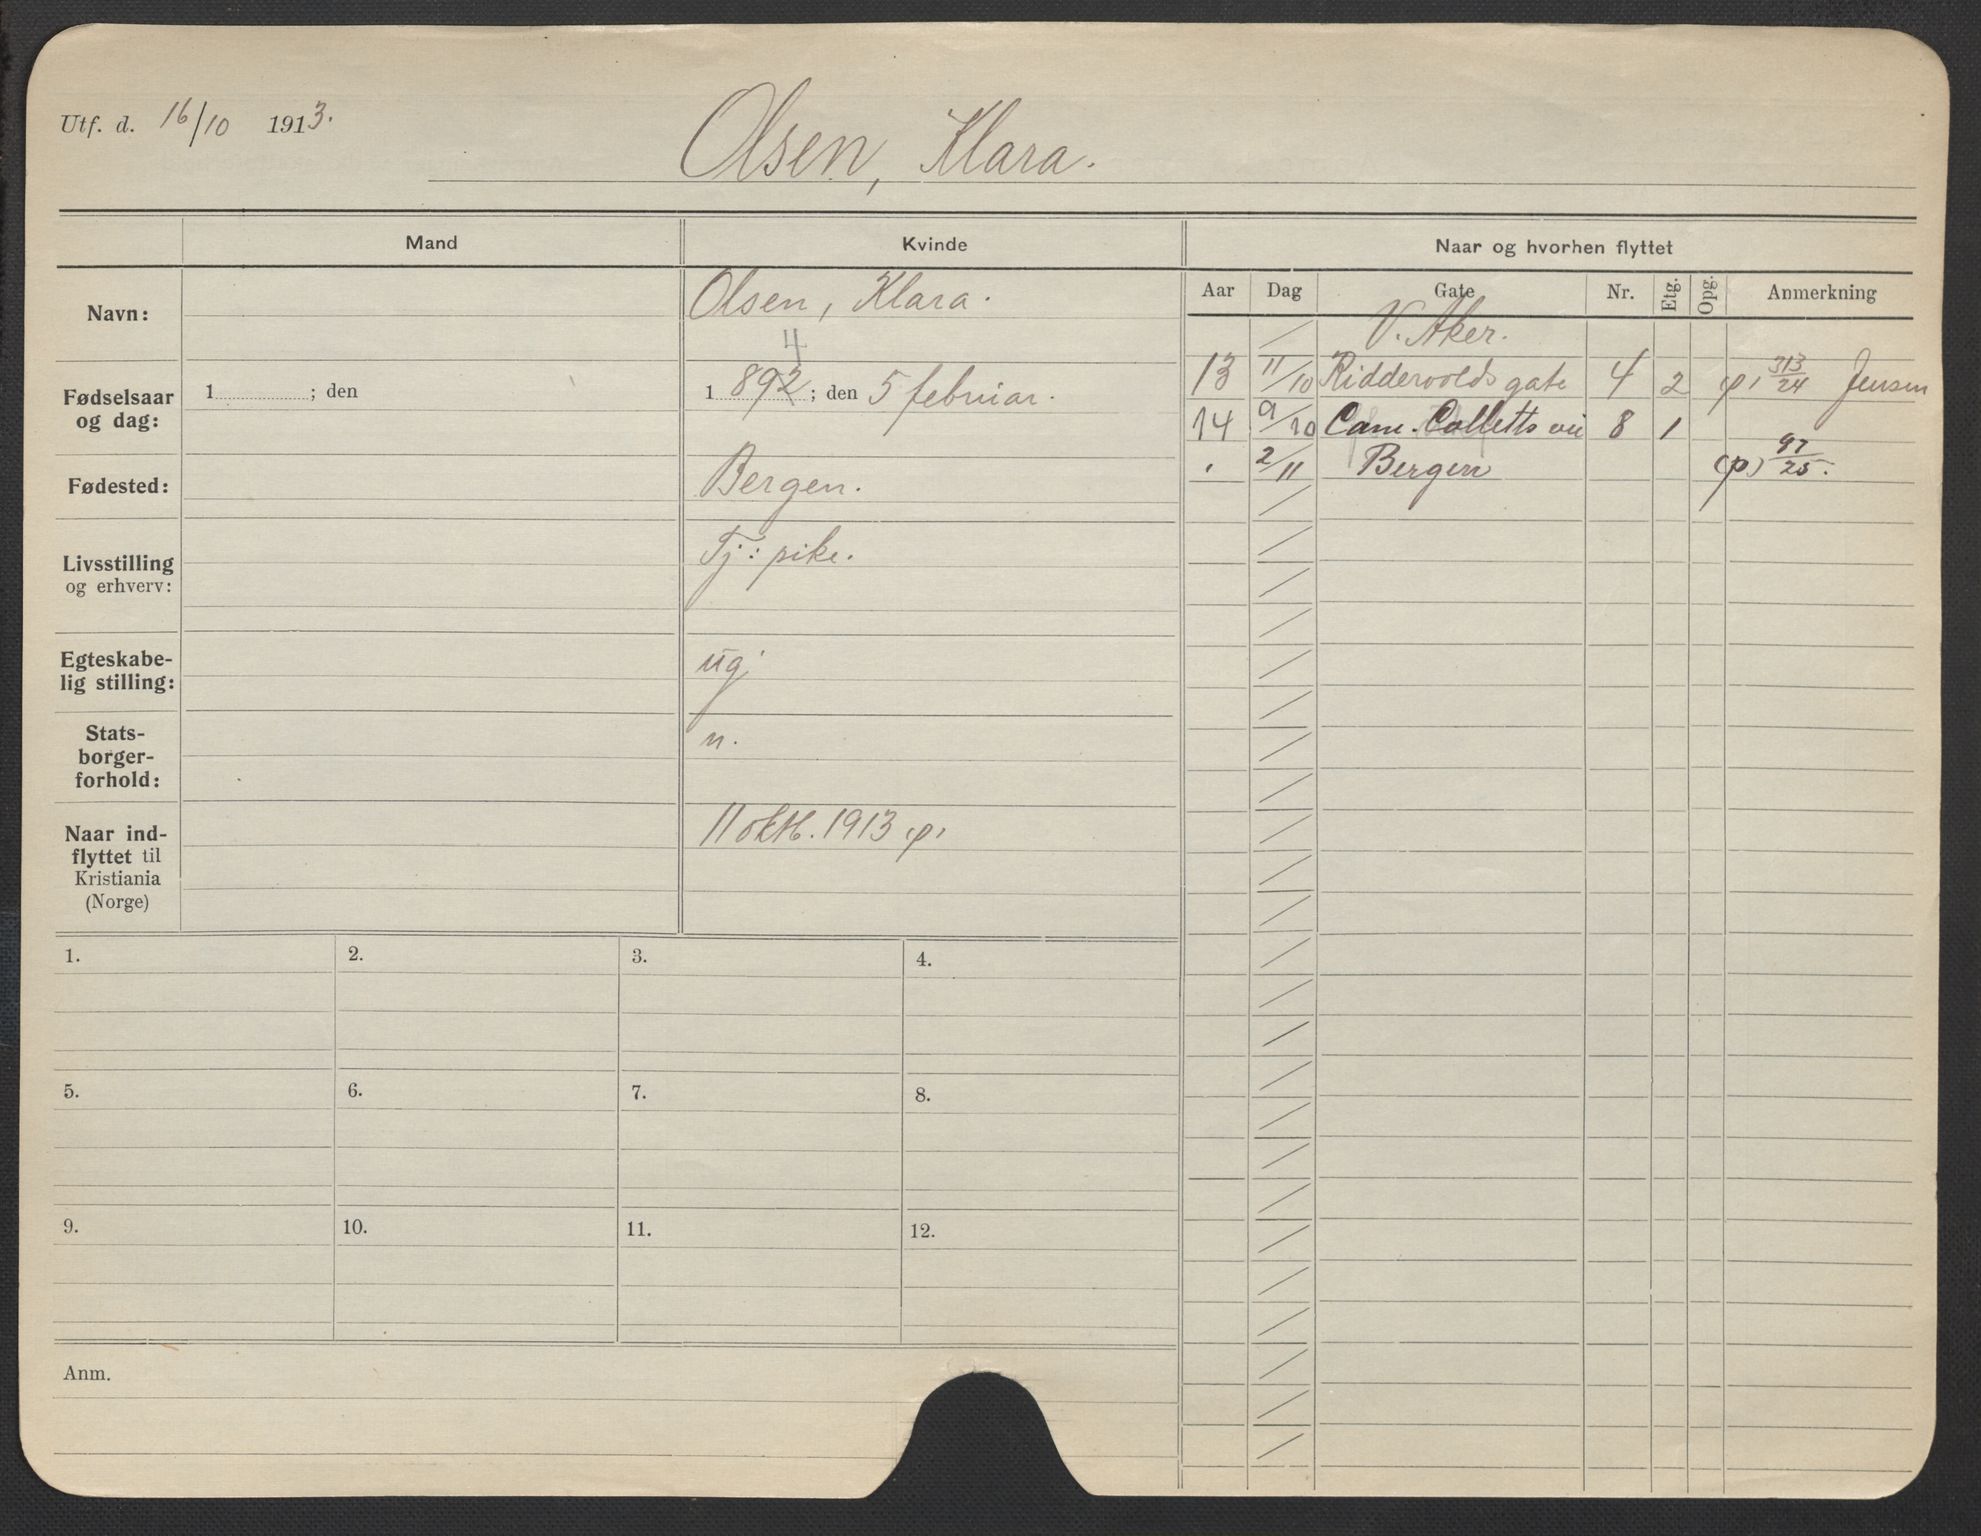 Utf. d. 16/10 1913.
Olsen, Klara.
Mand
Kvinde
Naar og hvorhen flyttet
Navn:
Olsen, Klara.
Fødselsaar
og dag:
1 ; den
4
1 892 ; den 5 februar.
Fødested:
Bergen.
Livsstilling
og erhverv:
Tj: pike.
Egteskabe-
lig stilling:
ug.
Stats-
borger-
forhold:
n.
Naar ind-
flyttet til
Kristiania
(Norge)
11 oktb. 1913 (p)
Aar Dag Gate Nr. Etg. Opg. Anmerkning
V. Aker.
13 11/10 Riddervolds gate 4 2 (p) 313/24 Jensen
14 9/10 Cam. Colletts vei 8 1
" 2/11 Bergen (p) 97/25.
1. 2. 3. 4.
5. 6. 7. 8.
9. 10. 11. 12.
Anm.